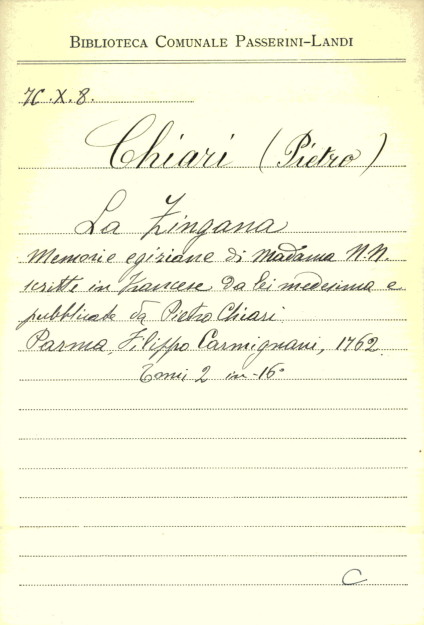 BIBLIOTECA COMUNALE PASSERINI-LANDI
X.8.
Chiari (Pietro)
La Zingana
Memorie egiziane di Madama N.N.
scritte in francese da lei medesima e
pubblicate da Pietro Chiari.
Parma, Filippo Carmignani, 1762.
Tomi 2 in-16°
C